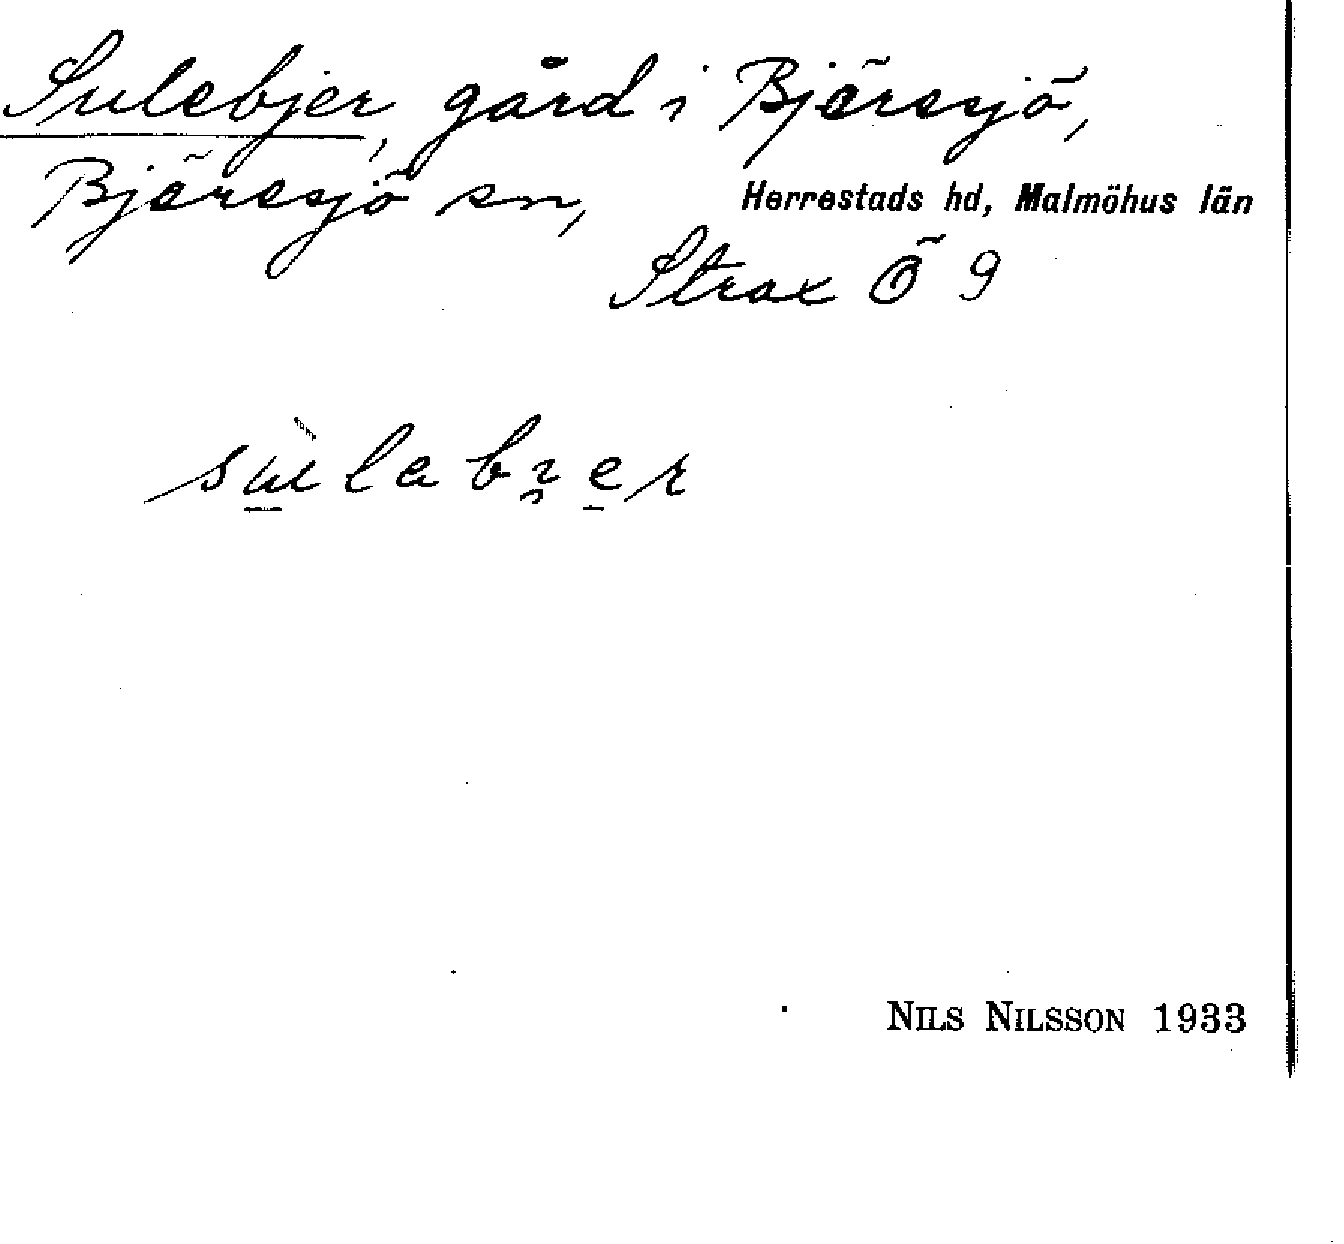 Sulebjer, gård i Bjäresjö,
Bjäresjö sn, Herrestads hd, Malmöhus län
Strax Ö 9
NILS NILSSON 1933